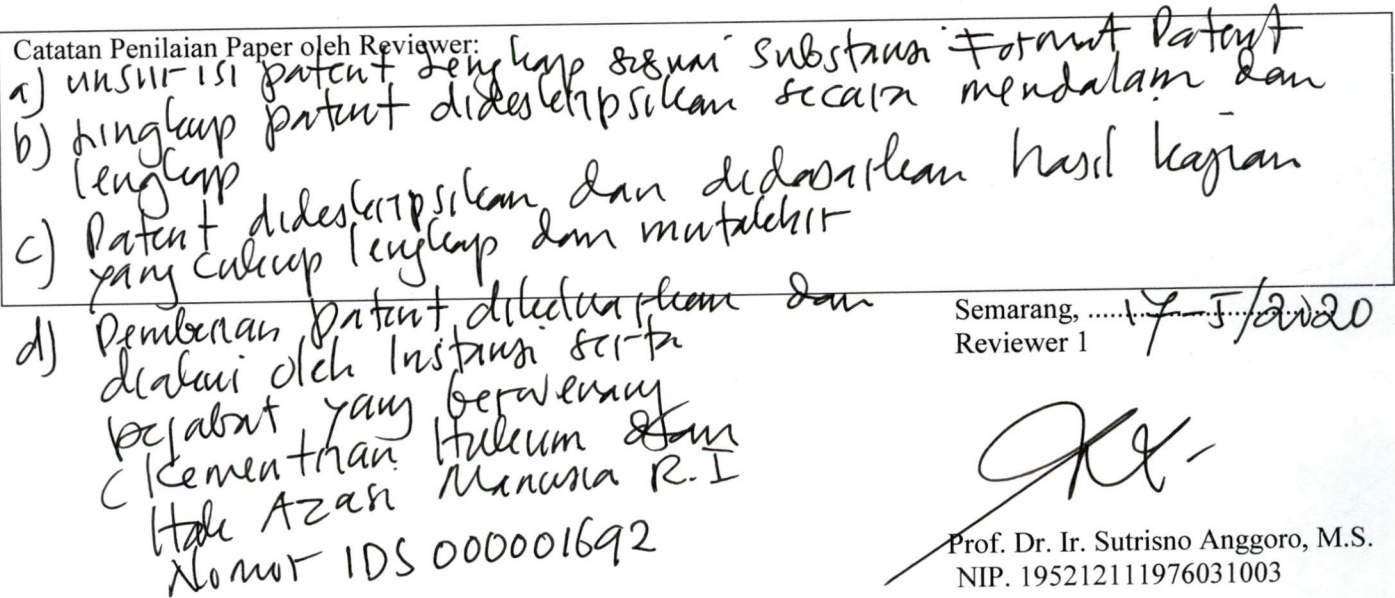 Catatan Penilaian Paper oleh Reviewer:
a) unsur isi patent lengkap sesuai substansi Format Patent
b) Lingkup patent dideskripsikan secara mendalam dan
lengkap
c) Patent dideskripsikan dan didasarkan hasil kajian
yang cukup lengkap dan mutakhir
d) Pemberian patent dikeluarkan dan
diakui oleh Instansi serta
pejabat yang berwenang
(Kementrian Hukum dan
Hak Azasi Manusia R.I
Nomor IDS 000001692
Semarang, 17-I/2020
Reviewer 1
Prof. Dr. Ir. Sutrisno Anggoro, M.S.
NIP. 195212111976031003